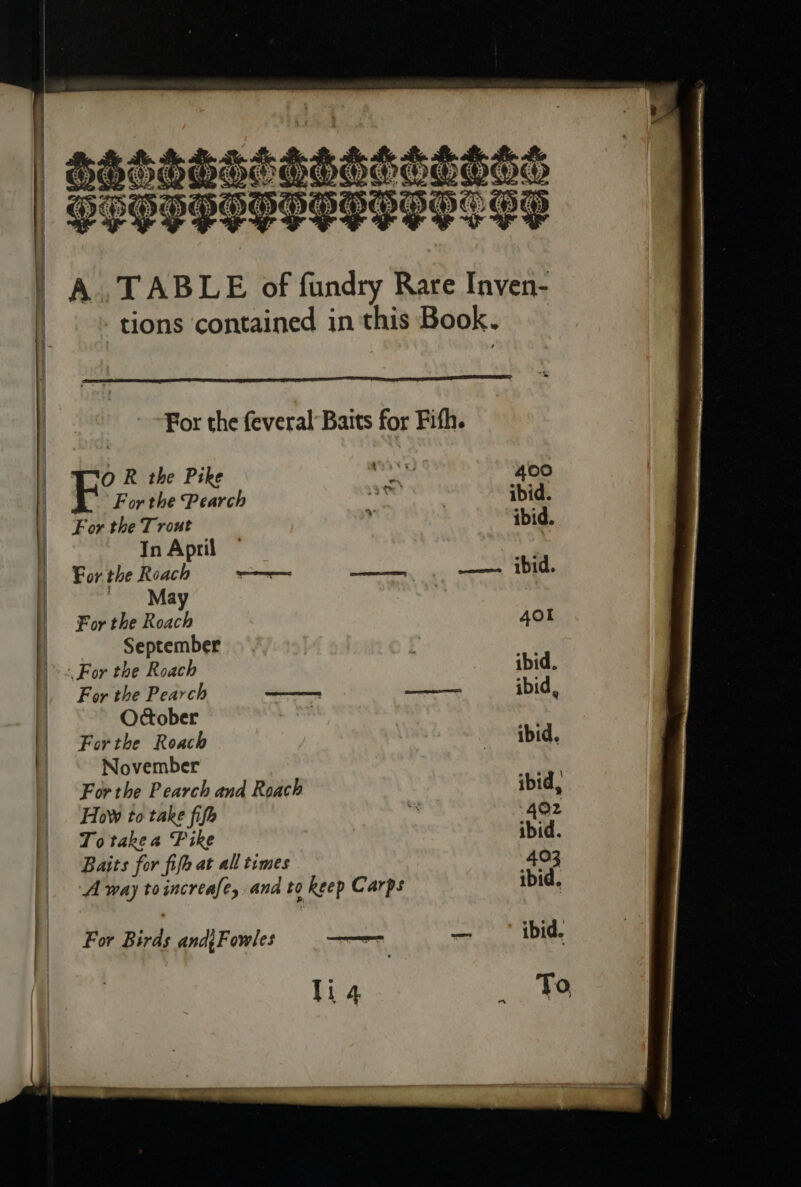 A TABLE of ſundry Rare Inven-
tions contained in this Book.
For the ſeveral Baits for Fiſh.
FOR the Pike 400
For the Pearch ibid.
For the Trout ibid.
In April
For the Roach —— —— —— ibid.
May
For the Roach 401
September
For the Roach ibid.
For the Pearch —— —— ibid,
October
For the Roach ibid.
November
For the Pearch and Roach ibid,
How to take fiſh 402
To take a Pike ibid.
Baits for fiſh at all times 403
A way to increaſe, and to keep Carps ibid.
For Birds and Fowles —— — ibid.
Ii 4 To